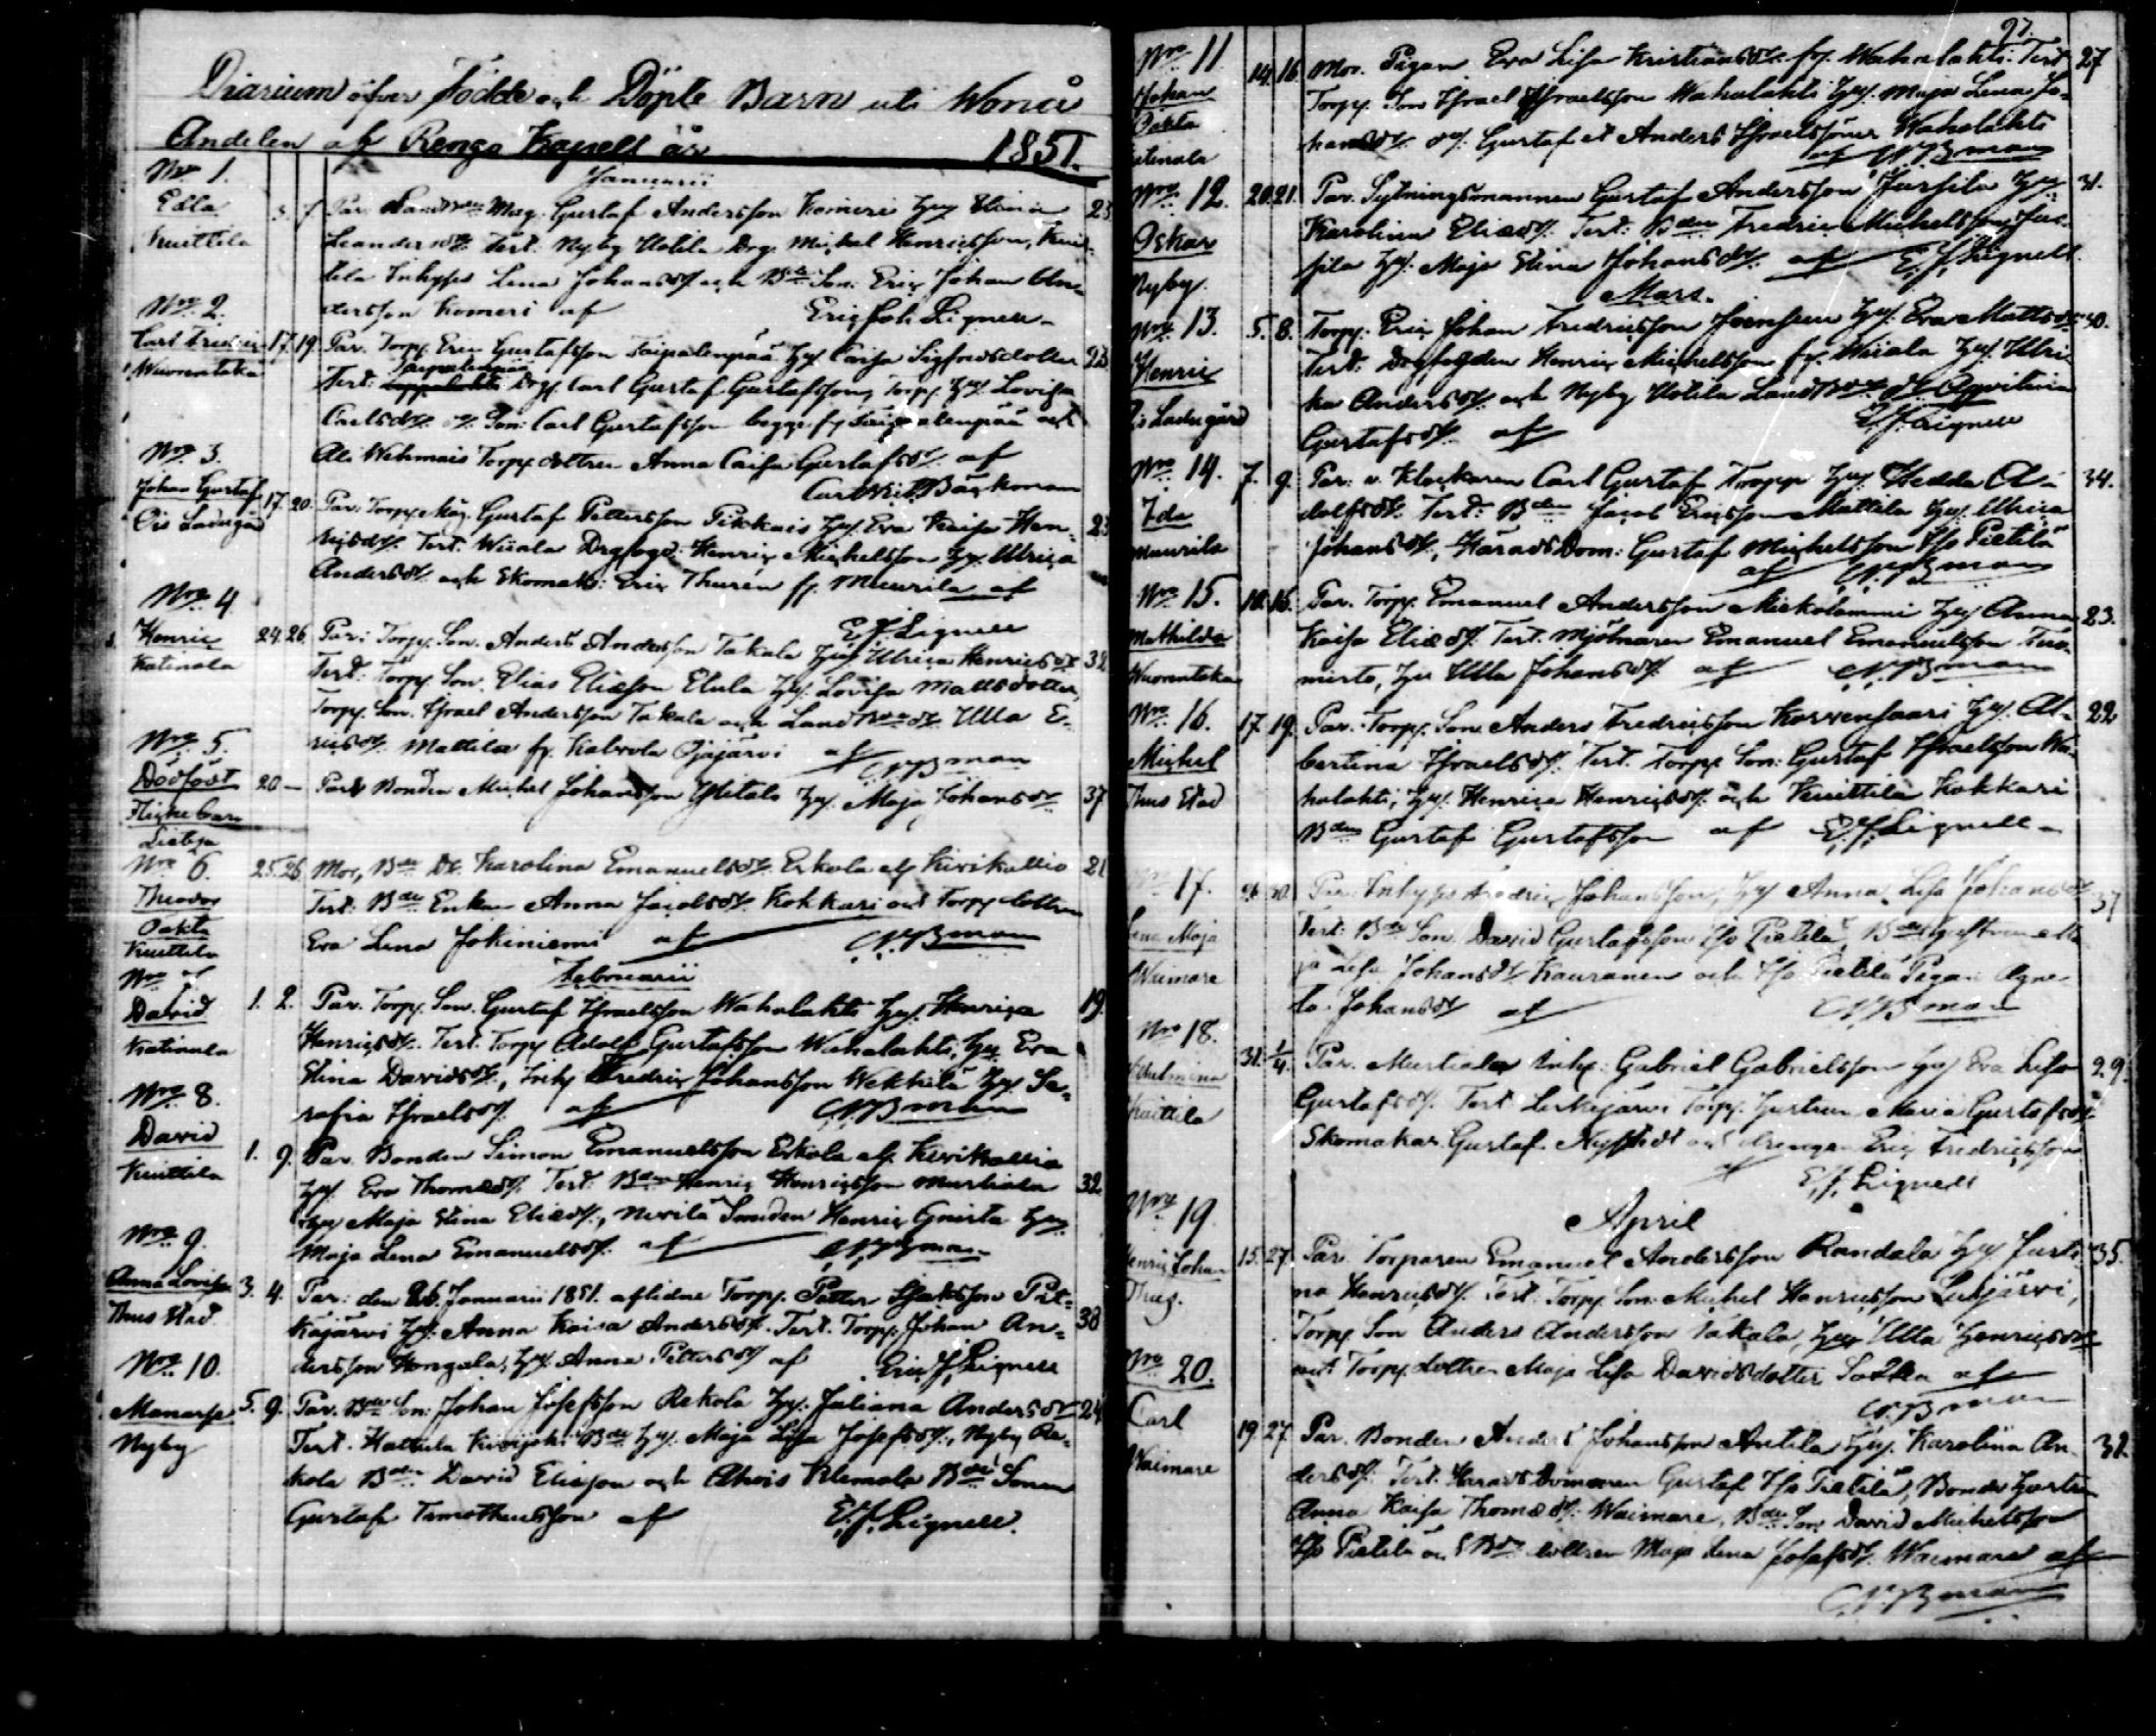 Diarium öfver Födde och Döpte Barn uti Wonå
Andelen af Renge Kapell år 1851.
Januarii
Nro 1.
Edla
Kuittila
Par. Gustaf Andersson Komeri Hust. Elinin 23
Leandersdr. Test: Nyby Uotila Drg. Michel Henricsson, Kuit-
tila Inhyses Lena Johansdr. och Bde Son. Eric Johan An-
dersson Komeri af Eric Joh. Lignell
Nro 2.
Carl Fredric
Wuorentaka
17. 19. Par. Torp. Eric Gustafsson Taipalenpää Hust. Caisa Sigfredsdotter 23
Taipalenpää
Test: Drg. Carl Gustaf Gustafsson, Torp. Hust. Lovisa
Carlsdr. Son: Carl Gustafsson begge fr. Taipalenpää och
Ali Wehmais Torpp. dottren Anna Caisa Gustafsdr. af
Bäckman
Nro 3.
Johan Gustaf
Ojs Ladugård
17. 20. Par. Torpp. Måg. Gustaf Pettersson Pikkais Hust. Eva Kaisa Hen- 23
ricsdr. Test. Wiiala Drgfogd. Henric Michelsson Hust. Ulrica
Andersdr. och Skomak: Eric Thurén fr. Muurila af
E. J. Lignell
Nro 4
Henric
Katinala
24. 26. Par: Torpp. Son. Anders Andersson Takala Hust. Ulrica Henricsdr. 32
Test: Torpp. Son. Elias Eliæson Elula Hust. Lovisa Mattsdotter,
Torpp. Son. Israel Andersson Takala och Land Bdr. Ulla E-
ricsdr. Mattila fr. Kalvola Ojajärvi af C. W. Bman
Nro 5.
Dödfödt
Flickebarn
20 — Par. Bonden Michel Johansson Ylitalo Hust. Maja Johansdr. 37
Nro 6.
Theodor
Oäkta
Kuittila
25. 26. Mor, Bde Dr. Karolina Emanuelsdr. Erkola alf Kirikallio 21
Test: Bde Enkan Anna Jacobsdr. Kokkari och Torpp. dottren
Eva Lena Jokiniemi af C. W. Bman
Februarii
Nro 7
David
Katinala
1. 2. Par. Torpp. Son. Gustaf Israelsson Wahalahti Hust. Henrica 19.
Henricsdr. Test. Torpp. Adolf Gustafsson Wahalahti, Hust. Eva
Stina Davidsdr., Fredric Johansson Wekkilä Hust. Se-
rafia Israelsdr. af C. W. Bman
Nro 8.
David
Kuittila
1. 9. Par. Bonden Simon Emanuelsson Erkola alf. Kirikallio
Hust. Eva Thomædr. Test. Bden Henric Henricsson Murtiala 32
Hust. Maja Stina Eliædr., Nivilä Smeden Henric Gnista Hust.
Maja Lena Emanuelsdr. af C. W. Bman
Nro 9.
Anna Lovisa
Thus Stad
3. 4. Par: den 26. Januarii 1851. aflidne Torpp. Petter Isaksson Pit- 38
käjärvi Hust. Anna Kaisa Andersdr. Test. Torpp. Johan An-
dersson Hongala, Hust. Anna Pettersdr. af Eric J. Lignell
Nro 10.
Manasse
Nyby
5. 9. Par. Bde Son: Johan Josefsson Rekola Hust. Juliana Andersdr. 24
Test. Hattula Bde Hust. Maja Lisa Josefsdr., Nyby Re-
kola Bden David Eliæson och Ahois Klemola Bde Sonen
Gustaf Timotheusson af E. J. Lignell.
97.
Nro 11
Johan
Oäkta
Katinala
14. 16. Mor. Pigan Eva Lisa Kristiansdr. fr. Wahalahti. Test 27
Torpp. Son Israel Israelsson Wahalahti Hust. Maja Lena Jo-
hansdr. Gustaf et Anders Israelssöner Wahalahti
af C. W. Bman
Nro 12.
Oskar
Nyby.
20. 21. Par. Sytningsmannen Gustaf Andersson Jussila Hust. 31.
Karolina Eliædr. Test: Bden Fredric Michelsson Jus-
sila Hust. Maja Stina Johansdr. af E. J. Lignell
Mars.
Nro 13.
Henric
Ojs Ladugård
5. 8. Torpp. Eric Johan Fredricsson Hust. Eva Mattsdr. 30.
Test: Drgfogden Henric Michelsson fr. Wiiala Hust. Ulri-
ka Andersdr. och Nyby Uotila Land Aqvilina
Gustafsdr. af E. J. Lignell
Nro 14.
Ida
Muurila
7. 9. Par: v. Klockaren Carl Gustaf Tropp Hust. Hedda A- 34.
dolfsdr. Test: Bden Jacob Ericsson Mattila Hust. Ulrica
Johansdr., Härads Dom: Gustaf Michelsson Iso Pietilä
af C. W. Bman
Nro 15.
Mathilda
Wuorentaka
10. 16. Par. Torpp. Emanuel Andersson Miekolammi Hust. Anna 23.
Kaisa Eliædr. Test. Mjölnaren Emanuel Emanuelsson
Hust. Ulla Johansdr. af C. W. Bman
Nro 16.
Michel
Thus Stad
17. 19. Par. Torpp. Son Anders Fredricsson Korvensaari Hust. Al- 22
bertina Israelsdr. Test. Torpp. Son: Gustaf Israelsson Wa-
halahti, Hust. Henrica Henricsdr. och Kuittila Kokkari
Bden Gustaf Gustafsson af E. J. Lignell
Nro 17.
Lena Maja
Waimare
30. Par. Inhyses Fredric Johansson, Hust. Anna Lisa Johansdr. 37
Test: Bde Son. David Gustafsson Iso Pietilä, Bde Hustrun Ma-
ja Lisa Johansdr. Kauranen och Iso Pietilä Pigan Agne-
ta Johansdr. af C. W. Bman
Nro 18.
Wilhelmina
Kuittila
31. 1/4. Par. Murtiala Inhys: Gabriel Gabrielsson Hust. Eva Lisa 29.
Gustafsdr. Test. Torpp. Hustrun Maria Gustafsdr.
Skomakar. Gustaf och drengen Eric Fredricsson
af E. J. Lignell
April
Nro 19.
Henric Johan
15. 27. Par. Torparen Emanuel Andersson Randala Hust. Justi- 35.
na Henricsdr. Test. Torpp. Son: Michel Henricsson
Torpp. Son Anders Andersson Takala, Hust. Ulla Henricsdr.
och Torpp. dottren Maja Lisa Davidsdotter af
C. W. Bman
Nro 20.
Carl
Waimare
19. 27. Par. Bonden Anders Johansson Antila Hust. Karolina An- 32.
dersdr. Test. Härads Domaren Gustaf Iso Pietilä, Bonde Hustrun
Anna Kaisa Thomædr. Waimare, Bde Son David Michelsson
Iso Pietilä och Bde dottren Maja Lena Josefsdr. Waimare af
C. W. Bman